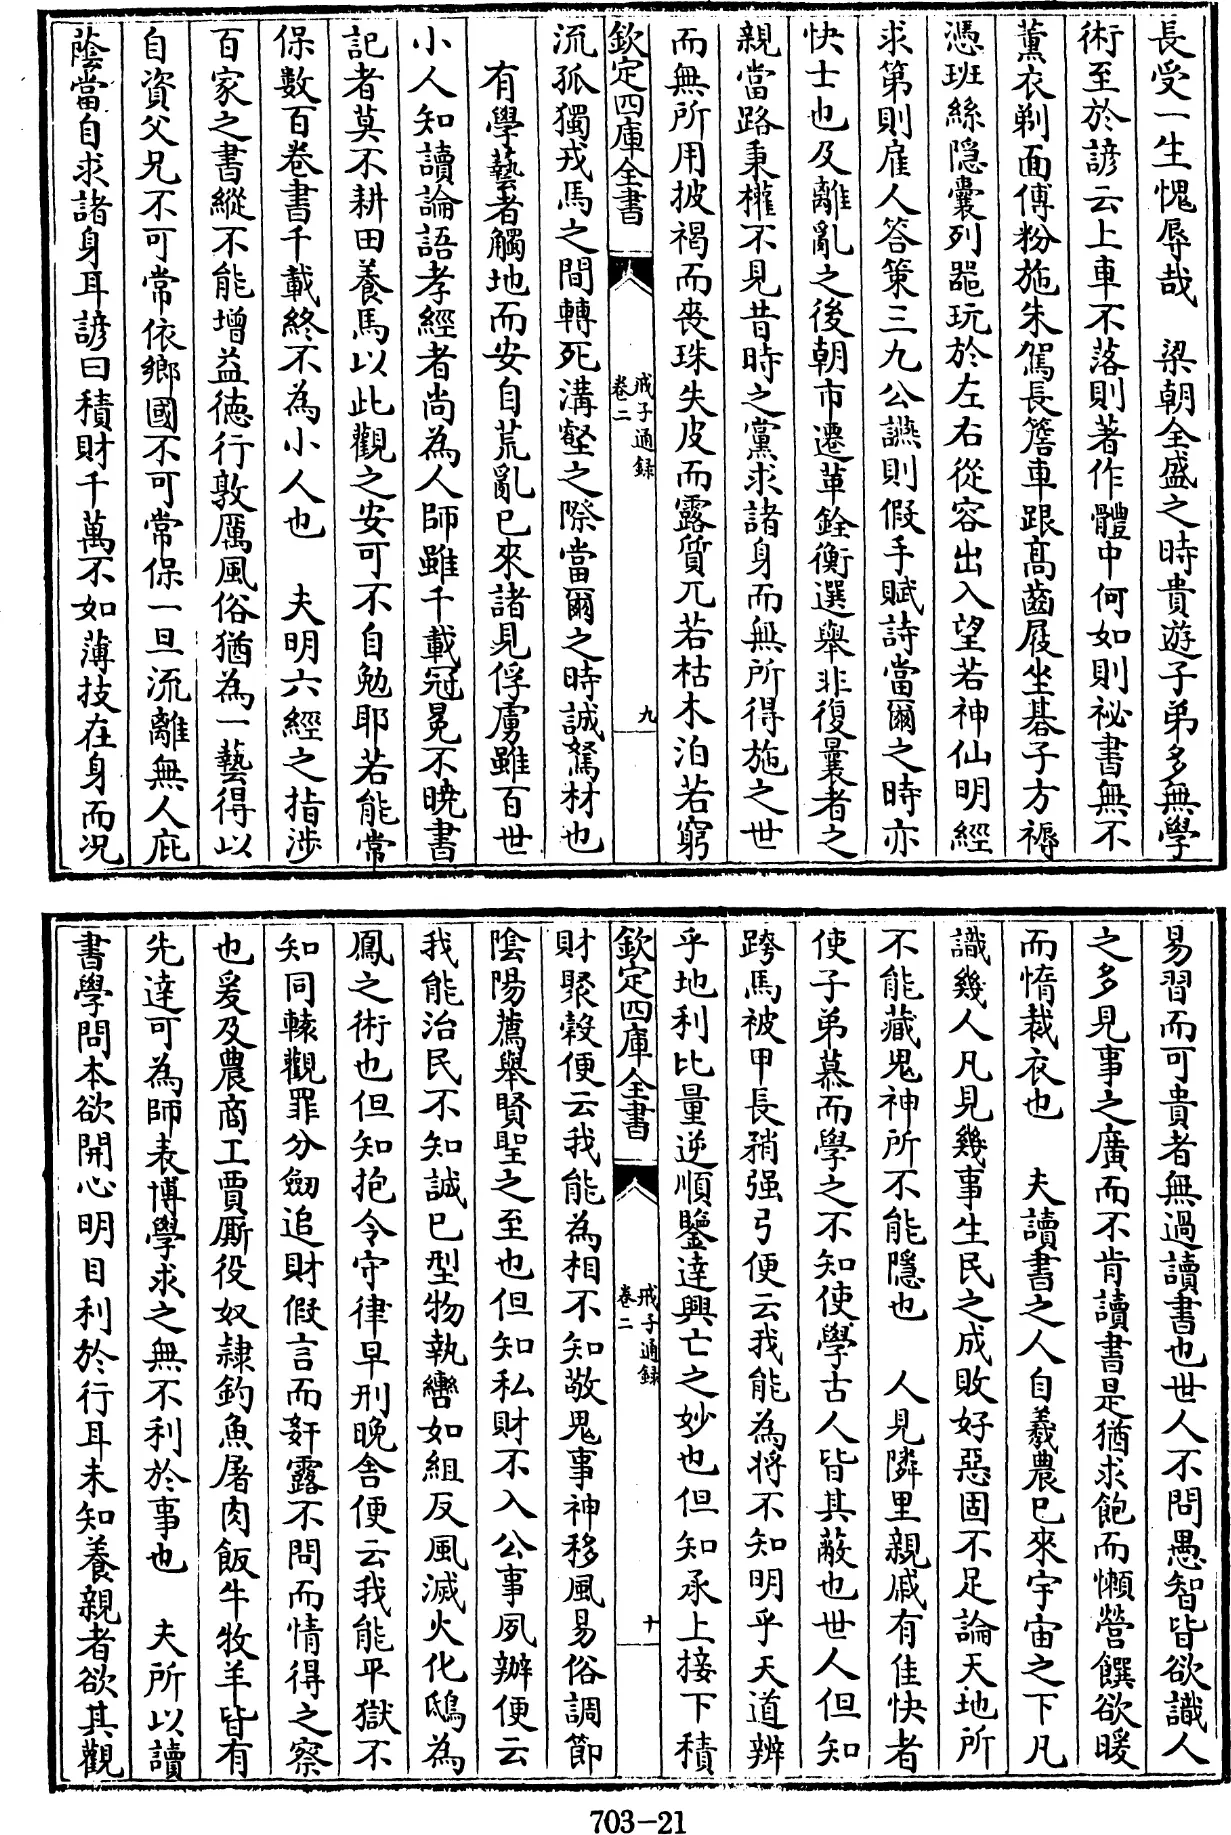 長受一生愧辱哉　梁朝全盛之時貴遊子弟多無學
術至於諺云上車不落則著作體中何如則祕書無不
薰衣剃面傅粉施朱駕長簷車跟高齒屐坐棊子方褥
憑班絲隠囊列器玩於左右從容出入望若神仙明經
求第則雇人答策三九公讌則假手賦詩當爾之時亦
快士也及離亂之後朝市遷革銓衡選舉非復曩者之
親當路秉權不見昔時之黨求諸身而無所得施之世
而無所用披褐而喪珠失皮而露質兀若枯木泊若窮
欽定四庫全書
戒子通録
卷二
九
流孤獨戎馬之間轉死溝壑之際當爾之時誠駑材也
有學藝者觸地而安自荒亂已來諸見俘虜雖百世
小人知讀論語孝經者尚為人師雖千載冠冕不曉書
記者莫不耕田養馬以此觀之安可不自勉耶若能常
保數百卷書千載終不為小人也　夫明六經之指涉
百家之書縱不能增益德行敦厲風俗猶為一藝得以
自資父兄不可常依鄉國不可常保一旦流離無人庇
蔭當自求諸身耳諺曰積財千萬不如薄技在身而況
易習而可貴者無過讀書也世人不問愚智皆欲識人
之多見事之廣而不肯讀書是猶求飽而懶營饌欲暖
而惰裁衣也　夫讀書之人自羲農已來宇宙之下凡
識幾人凡見幾事生民之成敗好惡固不足論天地所
不能藏鬼神所不能隱也　人見隣里親戚有佳快者
使子弟慕而學之不知使學古人皆其蔽也世人但知
跨馬被甲長矟强弓便云我能為將不知明乎天道辨
乎地利比量逆順鑒達興亡之妙也但知承上接下積
欽定四庫全書
戒子通録
卷二
十
財聚穀便云我能為相不知敬鬼事神移風易俗調節
陰陽薦舉賢聖之至也但知私財不入公事夙辦便云
我能治民不知誠已型物執轡如組反風滅火化鴟為
鳳之術也但知抱令守律早刑晚舍便云我能平獄不
知同轅觀罪分劒追財假言而姧露不問而情得之察
也爰及農商工賈厮役奴隷釣魚屠肉飯牛牧羊皆有
先達可為師表博學求之無不利於事也　夫所以讀
書學問本欲開心明目利於行耳未知養親者欲其觀
703-21